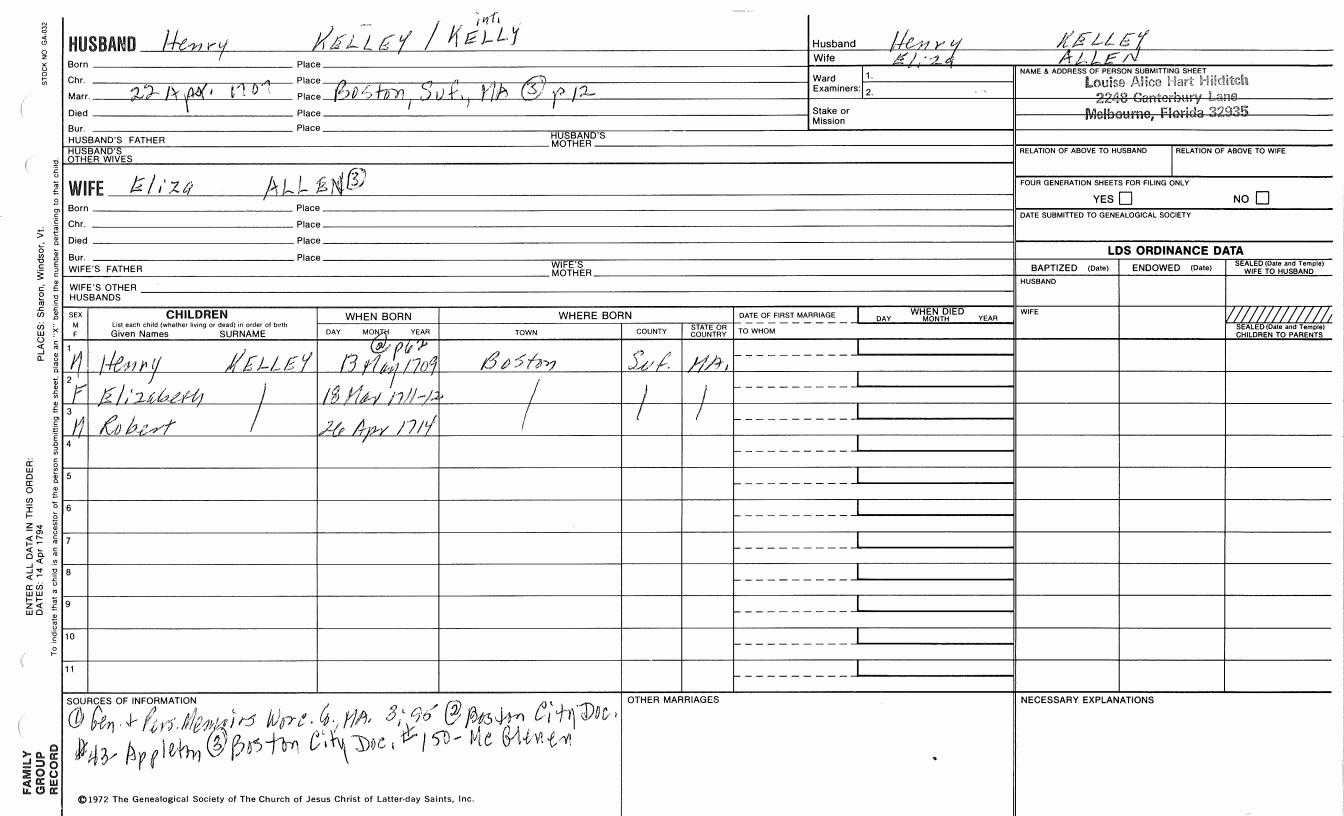 STOCK NO GA-032
int.
HUSBAND Henry KELLEY / KELLY
Born Place
Chr. Place
Marr. 22 Apr. Place Boston, Suf., MA ③ p 12
Died Place
Bur. Place
HUSBAND'S FATHER HUSBAND'S MOTHER
HUSBAND'S OTHER WIVES
WIFE Eliza ALLEN ③
Born Place
Chr. Place
Died Place
Bur. Place
WIFE'S FATHER WIFE'S MOTHER
WIFE'S OTHER HUSBANDS
Husband Henry KELLEY
Wife Eliza ALLEN
Ward Examiners: 1.
2.
Stake or Mission
NAME & ADDRESS OF PERSON SUBMITTING SHEET
Louise Alice Hart Hilditch
2248 Canterbury Lane
Melbourne, Florida 32935
RELATION OF ABOVE TO HUSBAND RELATION OF ABOVE TO WIFE
FOUR GENERATION SHEETS FOR FILING ONLY
YES NO
DATE SUBMITTED TO GENEALOGICAL SOCIETY
LDS ORDINANCE DATA
BAPTIZED (Date) ENDOWED (Date) SEALED (Date and Temple) WIFE TO HUSBAND
HUSBAND
WIFE
SEALED (Date and Temple) CHILDREN TO PARENTS
SEX M F
CHILDREN
List each child (whether living or dead) in order of birth
Given Names SURNAME
WHEN BORN
DAY MONTH YEAR
WHERE BORN
TOWN COUNTY STATE OR COUNTRY
DATE OF FIRST MARRIAGE
TO WHOM
WHEN DIED
DAY MONTH YEAR
② p62
1 M Henry KELLEY 13 May 1709 Boston Suf. MA.
2 F Elizabeth 18 Mar 1711-12
3 M Robert 26 Apr 1714
4
5
6
7
8
9
10
11
SOURCES OF INFORMATION
① Gen. + Pers. Memoirs Worc. Co., MA. 3:95 ② Boston City Doc.
#43 Appleton ③ Boston City Doc. #150 - Mc Glenen
OTHER MARRIAGES
NECESSARY EXPLANATIONS
©1972 The Genealogical Society of The Church of Jesus Christ of Latter-day Saints, Inc.
FAMILY GROUP RECORD
ENTER ALL DATA IN THIS ORDER:
DATES: 14 Apr 1794 PLACES: Sharon, Windsor, Vt.
To indicate that a child is an ancestor of the person submitting the sheet, place an "X" behind the number pertaining to that child